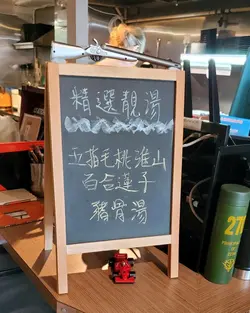 精選靚湯
五指毛桃淮山
百合蓮子
豬骨湯
27